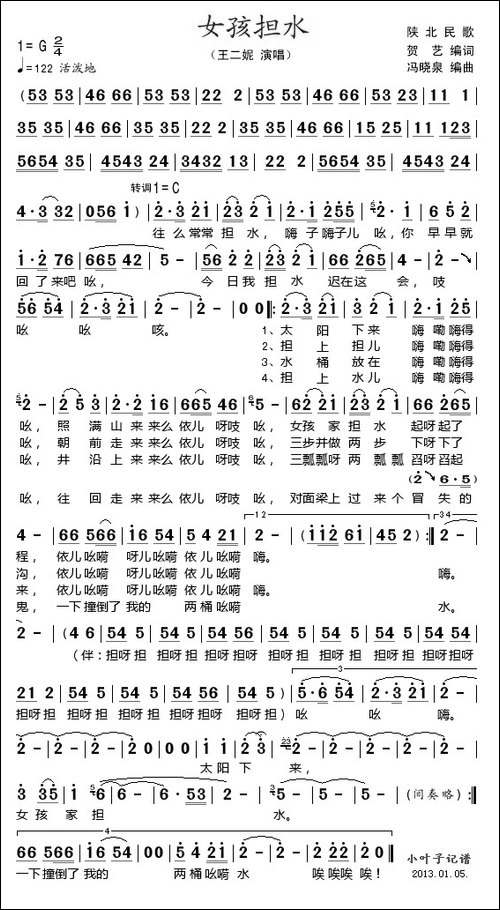 女孩担水
（王二妮 演唱）
陕北民歌
贺 艺 编词
冯晓泉 编曲
1=G 2/4
♩=122 活泼地
(53 53|46 66|53 53|22 2|53 53|46 66|35 35|23 23|11 1|
35 35|46 66|35 35|46 66|35 35|46 66|15 25|11 123|
5654 35|4543 24|3432 13|22 2|5654 35|4543 24|
转调1=C
4·3 32|056 i)|2·3 21|23 21|2·1 255|2·-|6 5 2|
往么常常 担 水， 嗨 子嗨子儿 吆，你 早早就
1·2 76|665 42|5 -|56 22|2 35|66 265|4 -|2 -|
回了来吧 吆， 今 日我 担水 迟在这 会，吱
56 54|2·3 21|2 -|2 -|00 0||:2·3 21|3 21|2·1 25|
吆 吆 咳。 1、太 阳 下来 嗨 嘞嗨得
2、担 上 担儿 嗨 嘞嗨得
3、水 桶 放在 嗨 嘞嗨得
4、担 上 水儿 嗨 嘞嗨得
2 -|2 5 3|2·2 16|665 46|5 -|62 21|2 65|
吆， 照 满山 来来么 依儿 呀吱 吆， 女孩 家 担水 起呀起了
吆， 朝 前走 来来么 依儿 呀吱 吆， 三步并做 两 步 下呀下了
吆， 井 沿上 来来么 依儿 呀吱 吆， 三瓢瓢呀 两 瓢瓢 舀呀舀起
(2 6·5)
吆， 往 回走 来来么 依儿 呀吱 吆， 对面梁上 过 来个 冒 失 的
4 -|66 566|16 54|5 4 21|2 -|(ii2 6i|452):||2 -|
程， 依儿吆嗬 呀儿吆嗬 依儿 吆嗬 嗨。
沟， 依儿吆嗬 呀儿吆嗬 依儿 吆嗬 嗨。
来， 依儿吆嗬 呀儿吆嗬 依儿 吆嗬
鬼， 一下 撞倒了 我的 两桶吆嗬 水。
2 -|(4 6|54 5|54 5|54 5|54 5|54 56|54 56|
（伴：担呀担 担呀担 担呀担 担呀担 担呀担 担呀担
21 2|54 5|54 5|54 56|54 56|21 2)|5·6 54|2·3 21|2 -|
担呀担 担呀担 担呀担 担呀担 担呀担 担呀担）吆 吆 嗨。
2 -|2 -|2 -|2 -|2 0|00|11|2 3|2 -|2 -|2 -|
太阳 下 来，
3 35|1|6|6 -|6 -|6·53|2 -|5 -|5 -|(间奏略):||
女 孩 家 担 水。
66 566|16 54|00|5 4 21|22|22|20||
一下撞倒了 我的 两桶吆嗬 水 唉唉唉 唉！
小叶子记谱
2013.01.05.